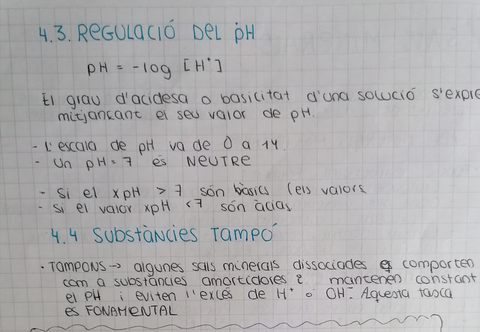 4.3. REGULACIÓ DEL pH
pH = -log [H⁺]
El grau d'acidesa o basicitat d'una solució s'expre
mitjançant el seu valor de pH.
- L'escala de pH va de 0 a 14.
- Un pH = 7 és NEUTRE
- Si el xpH > 7 són bàsics (els valors
- Si el valor xpH < 7 són àcids
4.4 SUBSTÀNCIES TAMPÓ
• TAMPONS → algunes sals minerals dissociades es comporten
com a substàncies amortidores i mantenen constant
el PH i eviten l'excés de H⁺ o OH⁻. Aquesta tasca
és FONAMENTAL